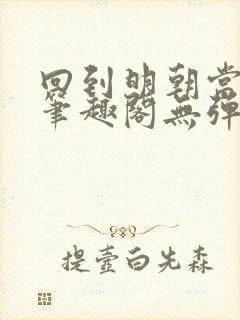 回到明朝當
筆趣閣無彈
提壺白先森